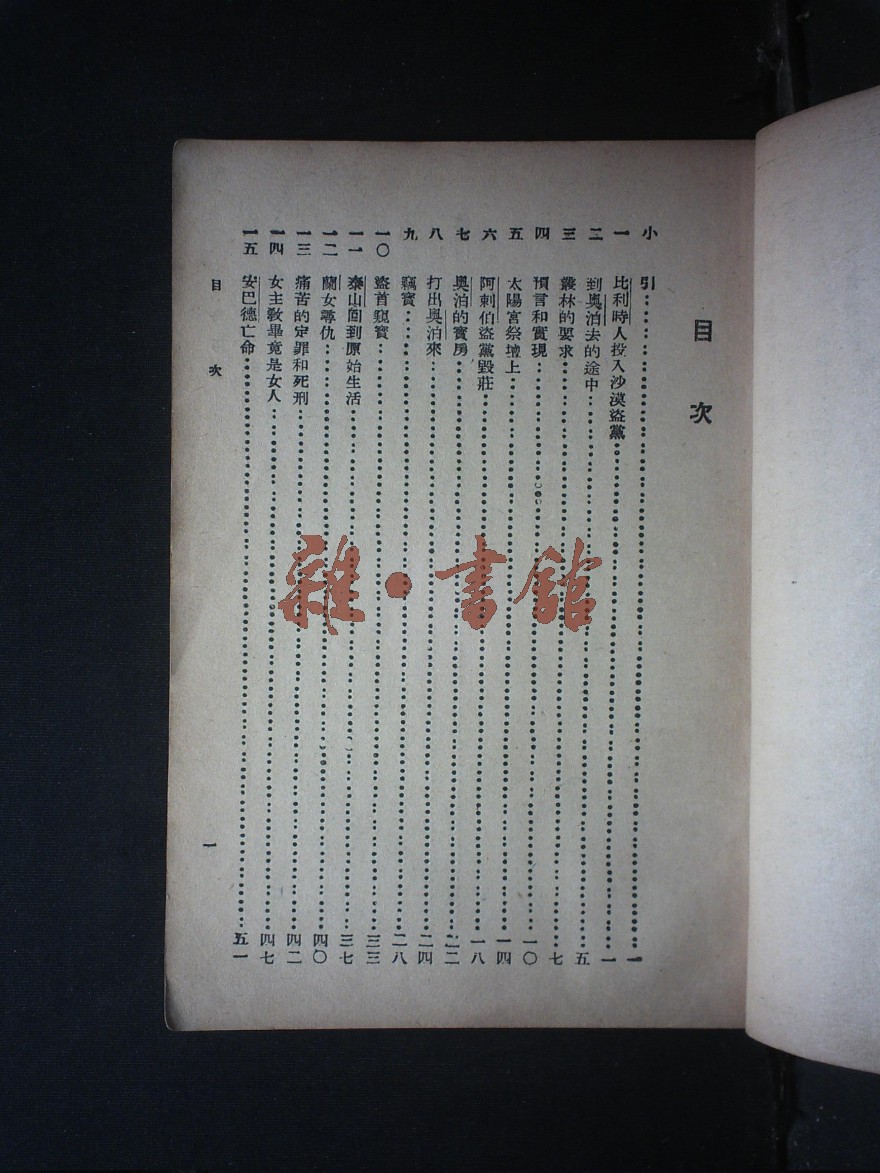 目次
小引……一
一 比利時人投入沙漠盜黨……一
二 到奧泊去的途中……五
三 叢林的要求……七
四 預言和實現……一〇
五 太陽宮祭壇上……一四
六 阿剌伯盜黨毀莊……一八
七 奧泊的寶房……二二
八 打出奧泊來……二四
九 竊寶……二八
一〇 盜首窺寶……三三
一一 泰山回到原始生活……三七
一二 蘭女尋仇……四〇
一三 痛苦的定罪和死刑……四二
一四 女主教畢竟是女人……四七
一五 安巴德亡命……五一
目次 一
雜·書館